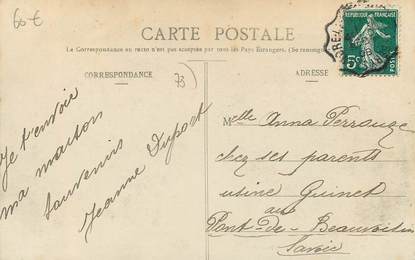 60 €
CARTE POSTALE
La Correspondance au recto n'est pas acceptée par tous les Pays Étrangers. (Se renseigner
CORRESPONDANCE
73
ADRESSE
RÉPUBLIQUE FRANÇAISE
5c
POSTES
Je t'envoie
ma maison
Souvenirs
Jeanne Dupont
Melle Anna Perrouze
chez ses parents
usine Guinet
au
Pont-de-Beauvoisin
Savoie